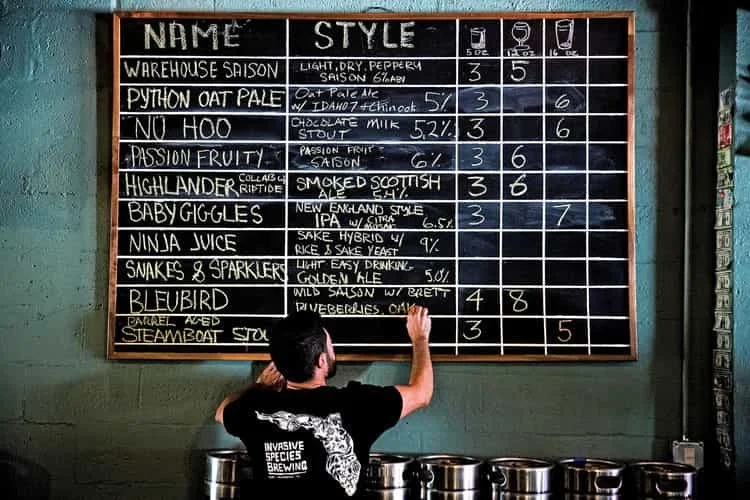 NAME STYLE 5 OZ 12 OZ 16 OZ
WAREHOUSE SAISON LIGHT, DRY, PEPPERY 3 5
SAISON 6% ABV
PYTHON OAT PALE Oat Pale Ale 5% 3 6
w/ IDAHO 7 + Chinook
NU HOO CHOCOLATE MILK 5.2% 3 6
STOUT
PASSION FRUITY PASSION FRUIT 3 6
SAISON 6%
HIGHLANDER COLLAB W/ RIPTIDE SMOKED SCOTTISH 3 6
ALE 5.4%
BABY GIGGLES NEW ENGLAND STYLE 3 7
IPA w/ CITRA MOSAIC 6.5%
NINJA JUICE SAKE HYBRID W/ 9%
RICE & SAKE YEAST
SNAKES & SPARKLERS LIGHT EASY DRINKING
GOLDEN ALE 5.0%
BLEUBIRD WILD SAISON W/ BRETT 4 8
BLUEBERRIES, OAK
BARREL AGED
STEAMBOAT STOU 3 5
INVASIVE
SPECIES
BREWING